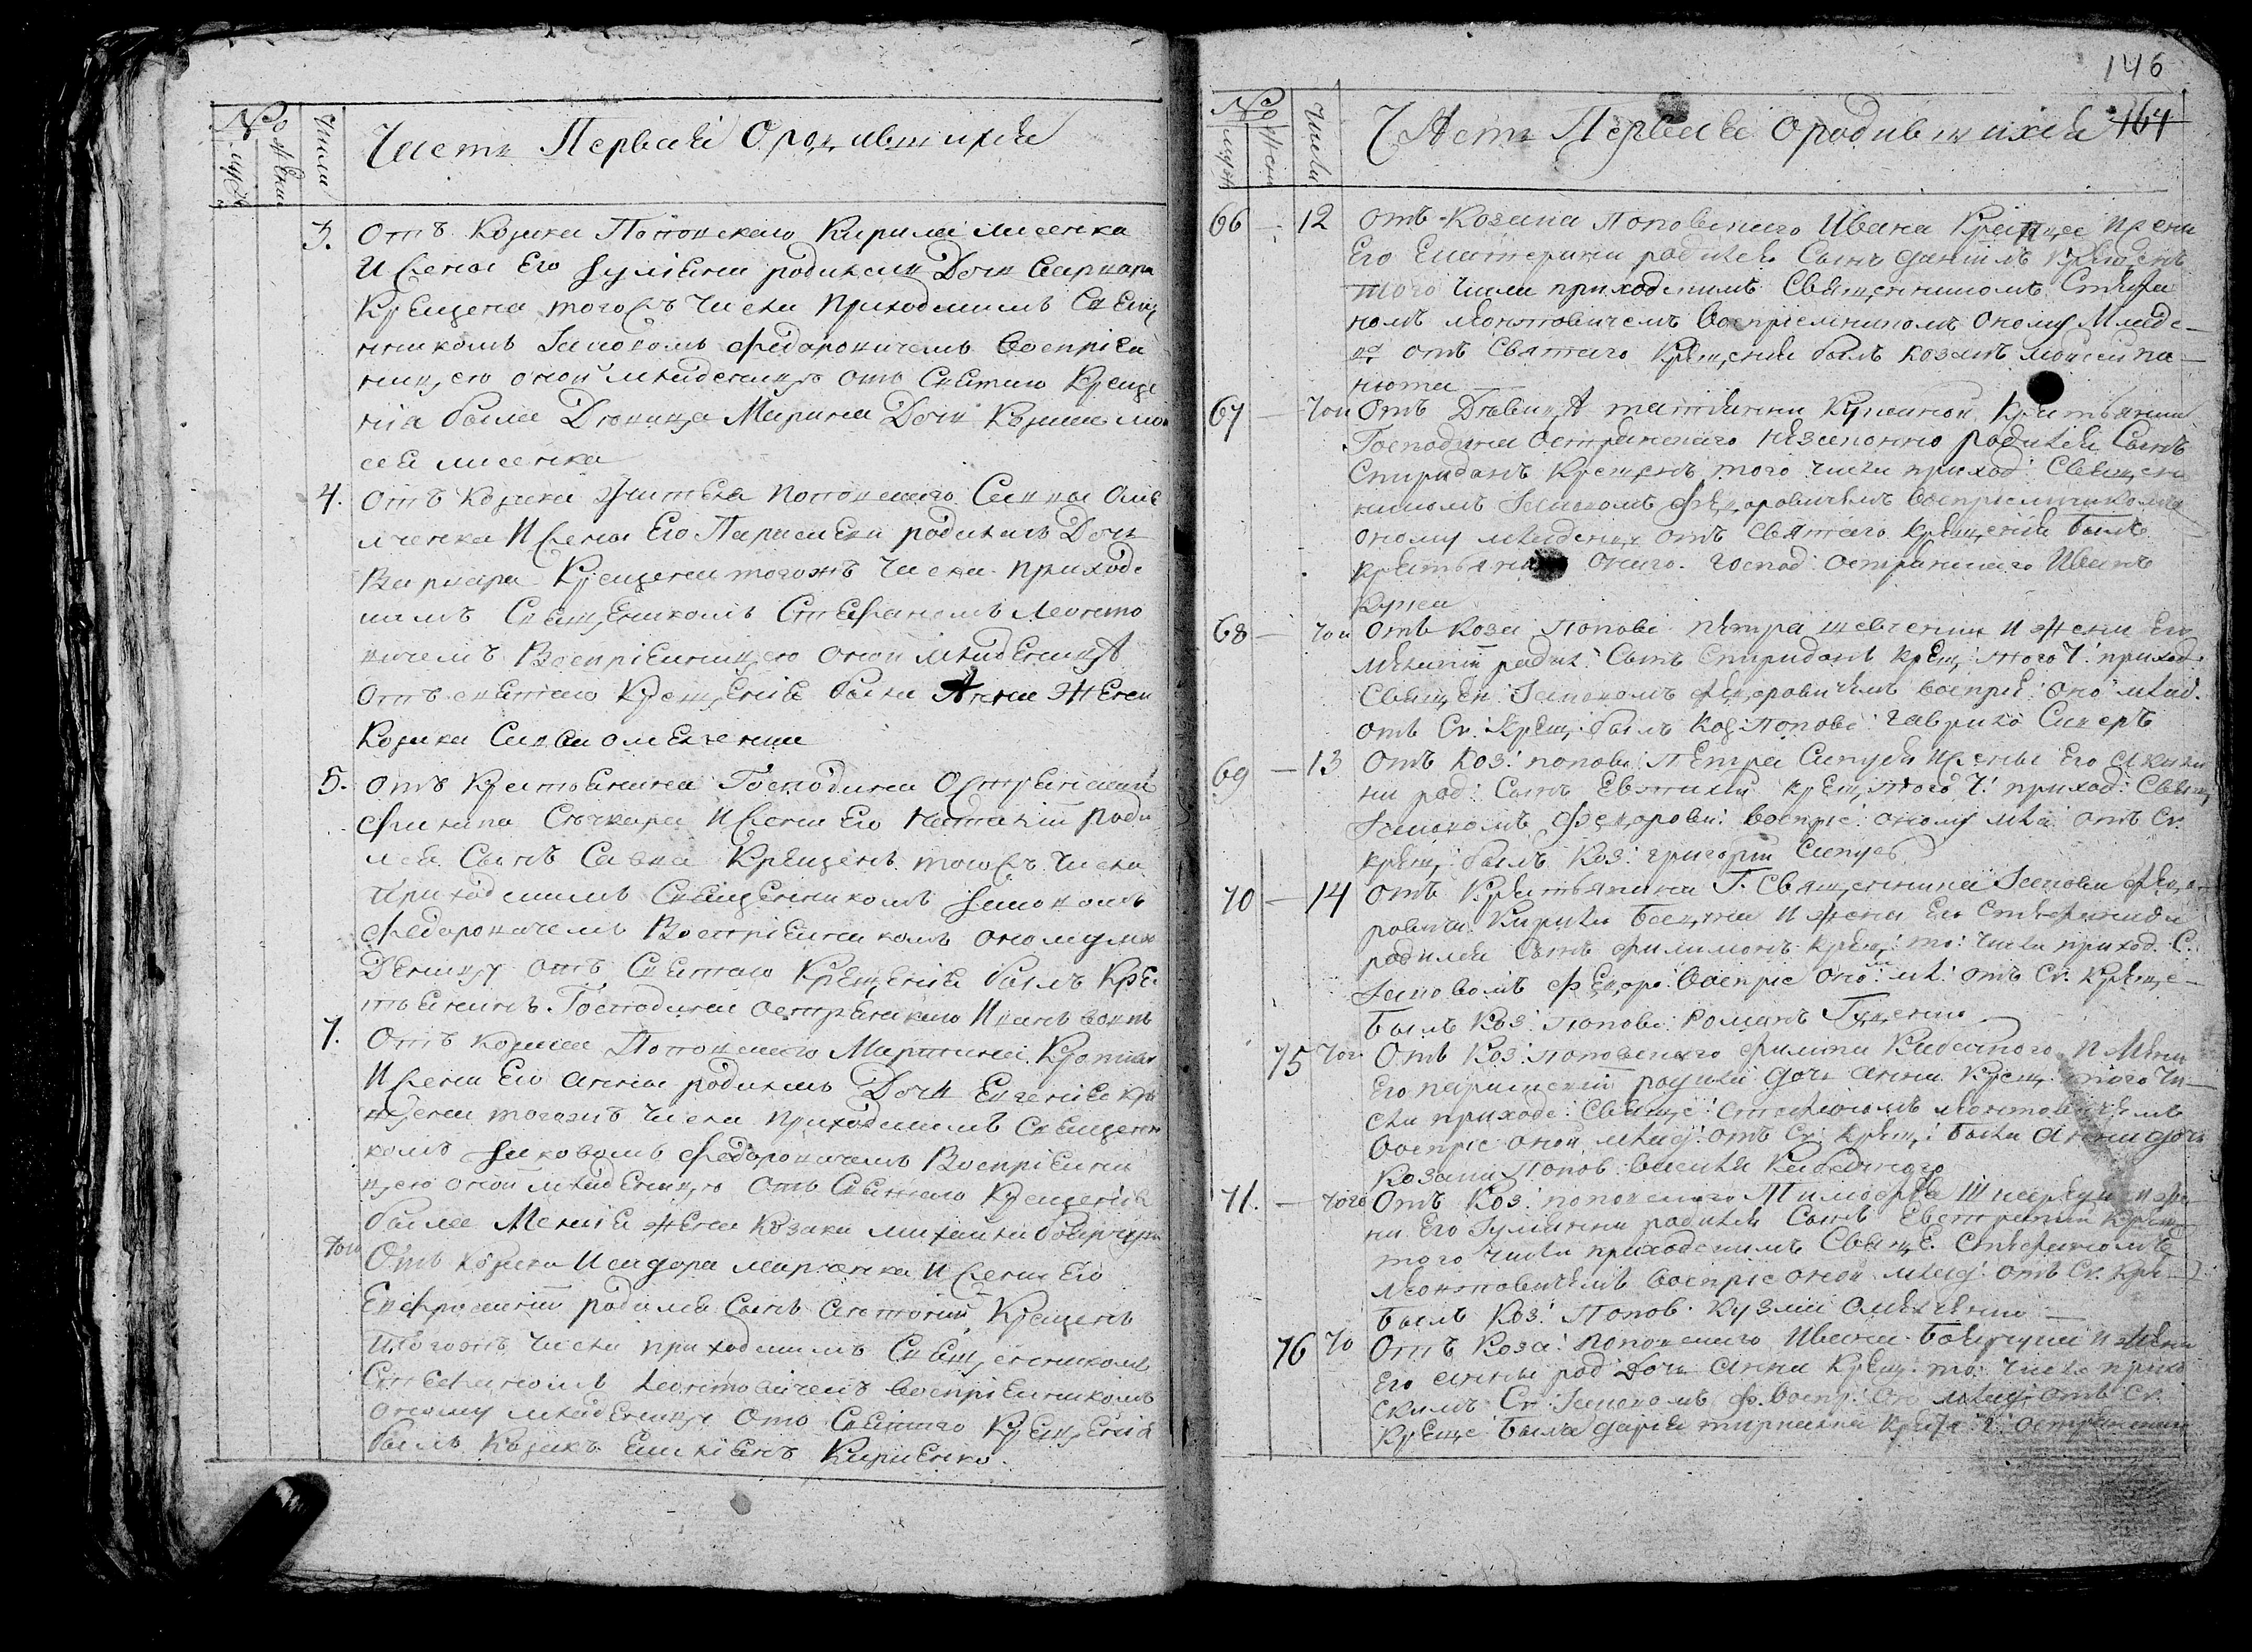 № Числа Часть Первая О родившихся
муж женс
3. Отъ Козака Поповскаго Кирила лисенка
И жены Его Іуліяни родилась Дочь Варвара
Крещена тогожъ Числа Приходскимъ Свящ
нникомъ Іаковомъ Федоровичемъ Воспріем
ницею оной младеницѣ отъ Святаго Креще
нія была Дѣвица Марина Дочь Козака мо
сея лисенка
4. Отъ Козака жителя поповскаго Саввы Оме
лченка И жены Его Параскеви родилась Дочь
Варвара Крещена тогожъ Числа приход
скимъ Священикомъ Стефаномъ Леонто
вичемъ Воспріемницею оной младеницѣ
Отъ святаго Крещенія была Анна Жена
Козака Саввы омелченка
5. Отъ Крестьянина Господина Острянскаго
Филипа Сѣчкара И жены Его Наталіи роди
лся Сынъ Савва Крещенъ тогожъ Числа
Приходскимъ Священникомъ Іаковомъ
Федоровичемъ Воспріемникомъ оному мла
Деницу отъ Святаго Крещенія былъ Кре
стьянинъ Господина острянскаго Иванъ
7. Отъ козака Поповскаго Мартина
И жены Его Анны родилась Дочь Евгенія кре
щена тогожъ числа приходскимъ Священни
комъ Іаковомъ Федоровичемъ Воспріемни
цею оной младеницѣ Отъ Святаго Крещенія
была Меланія жена Козака михаила
того Отъ козака Исидора марченка И жены Его
Евфросиніи родился Сынъ Антоній Крещенъ
тогожъ Числа приходскимъ Священникомъ
Стефаномъ Леонтовичемъ воспріемникомъ
оному младеницу Отъ Святаго Крещенія
былъ Козакъ Емиліянъ Кириенко.
146
164
№ Числа Часть Первая О родившихся
муж жен
66 — 12 отъ Козака поповскаго Ивана И жени
Его Екатерини родился Сынъ Даніилъ Крещенъ
того числа приходскимъ Священникомъ Стефа
номъ леонтовичемъ Воспріемникомъ оному Младе—
цу отъ Святаго Крещенія былъ козакъ моисей па—
нюта
67 — того Отъ Дѣвицы татіянни Крестьянки
Господина острянскаго незаконно родился Сынъ
Спиридонъ Крещенъ того числа приход: Священ
никомъ Іаковомъ Федоровичемъ Воспріемникомъ
оному младеницу отъ Святаго Крещенія былъ
крестьянинъ онаго господ: острянскаго Иванъ
68 — того Отъ коза поповс Петра шевченка и жени Его
Меланіи родил: Сынъ Спиридонъ крещ: того ч: приход:
Священ Іаковомъ Федоровичемъ воспріе: оно млад.
отъ Св: Крещ: былъ Коз: Попове: гаврило
69 — 13 отъ Коз: попове: Петра Сипуля И жены Его
ни род: Сынъ Евтихій крещ: того ч: приход: Священ
Іаковомъ Федорови: Воспріе: оному мла: отъ Св.
крещ: былъ Коз: григорій
70 — 14 отъ Крестьянина Г. Священника Іакова Федо
ровича Кирила и жени Его Стефаниди
родился Сынъ филимонъ крещ: то: числа приход: С:
Іаковомъ Федоро: Воспріе оно: мл: отъ Св: Креще—
былъ Коз: Попове: романъ
75 того Отъ Коз: поповскаго Филипа и жени
Его параскевіи родила дочь Анна Крещ: того чи—
сла приходс: Свяще: Стефаномъ леонтовичемъ
Воспріе оной млад: отъ Св: крещ: была Анна дочь
Козака Попов: василя
71. — того Отъ Коз: поповскаго Тимофея и же
ни Его Іуліянни родился Сынъ Евстратій крещ
того числа приходскимъ Свяще. Стефаномъ
леонтовичемъ воспріе оной млад: отъ Св. кре
былъ Коз: Попов: кузма омелченко —
76 то Отъ Коза: поповскаго Ивана и жени
Его Анны род Дочь Анна Крещ: то: числа прихо
скимъ Св: Іаковомъ Ф. воспр: оно млад: отъ Св.
Креще: была дарія крестя: г: острянскаго